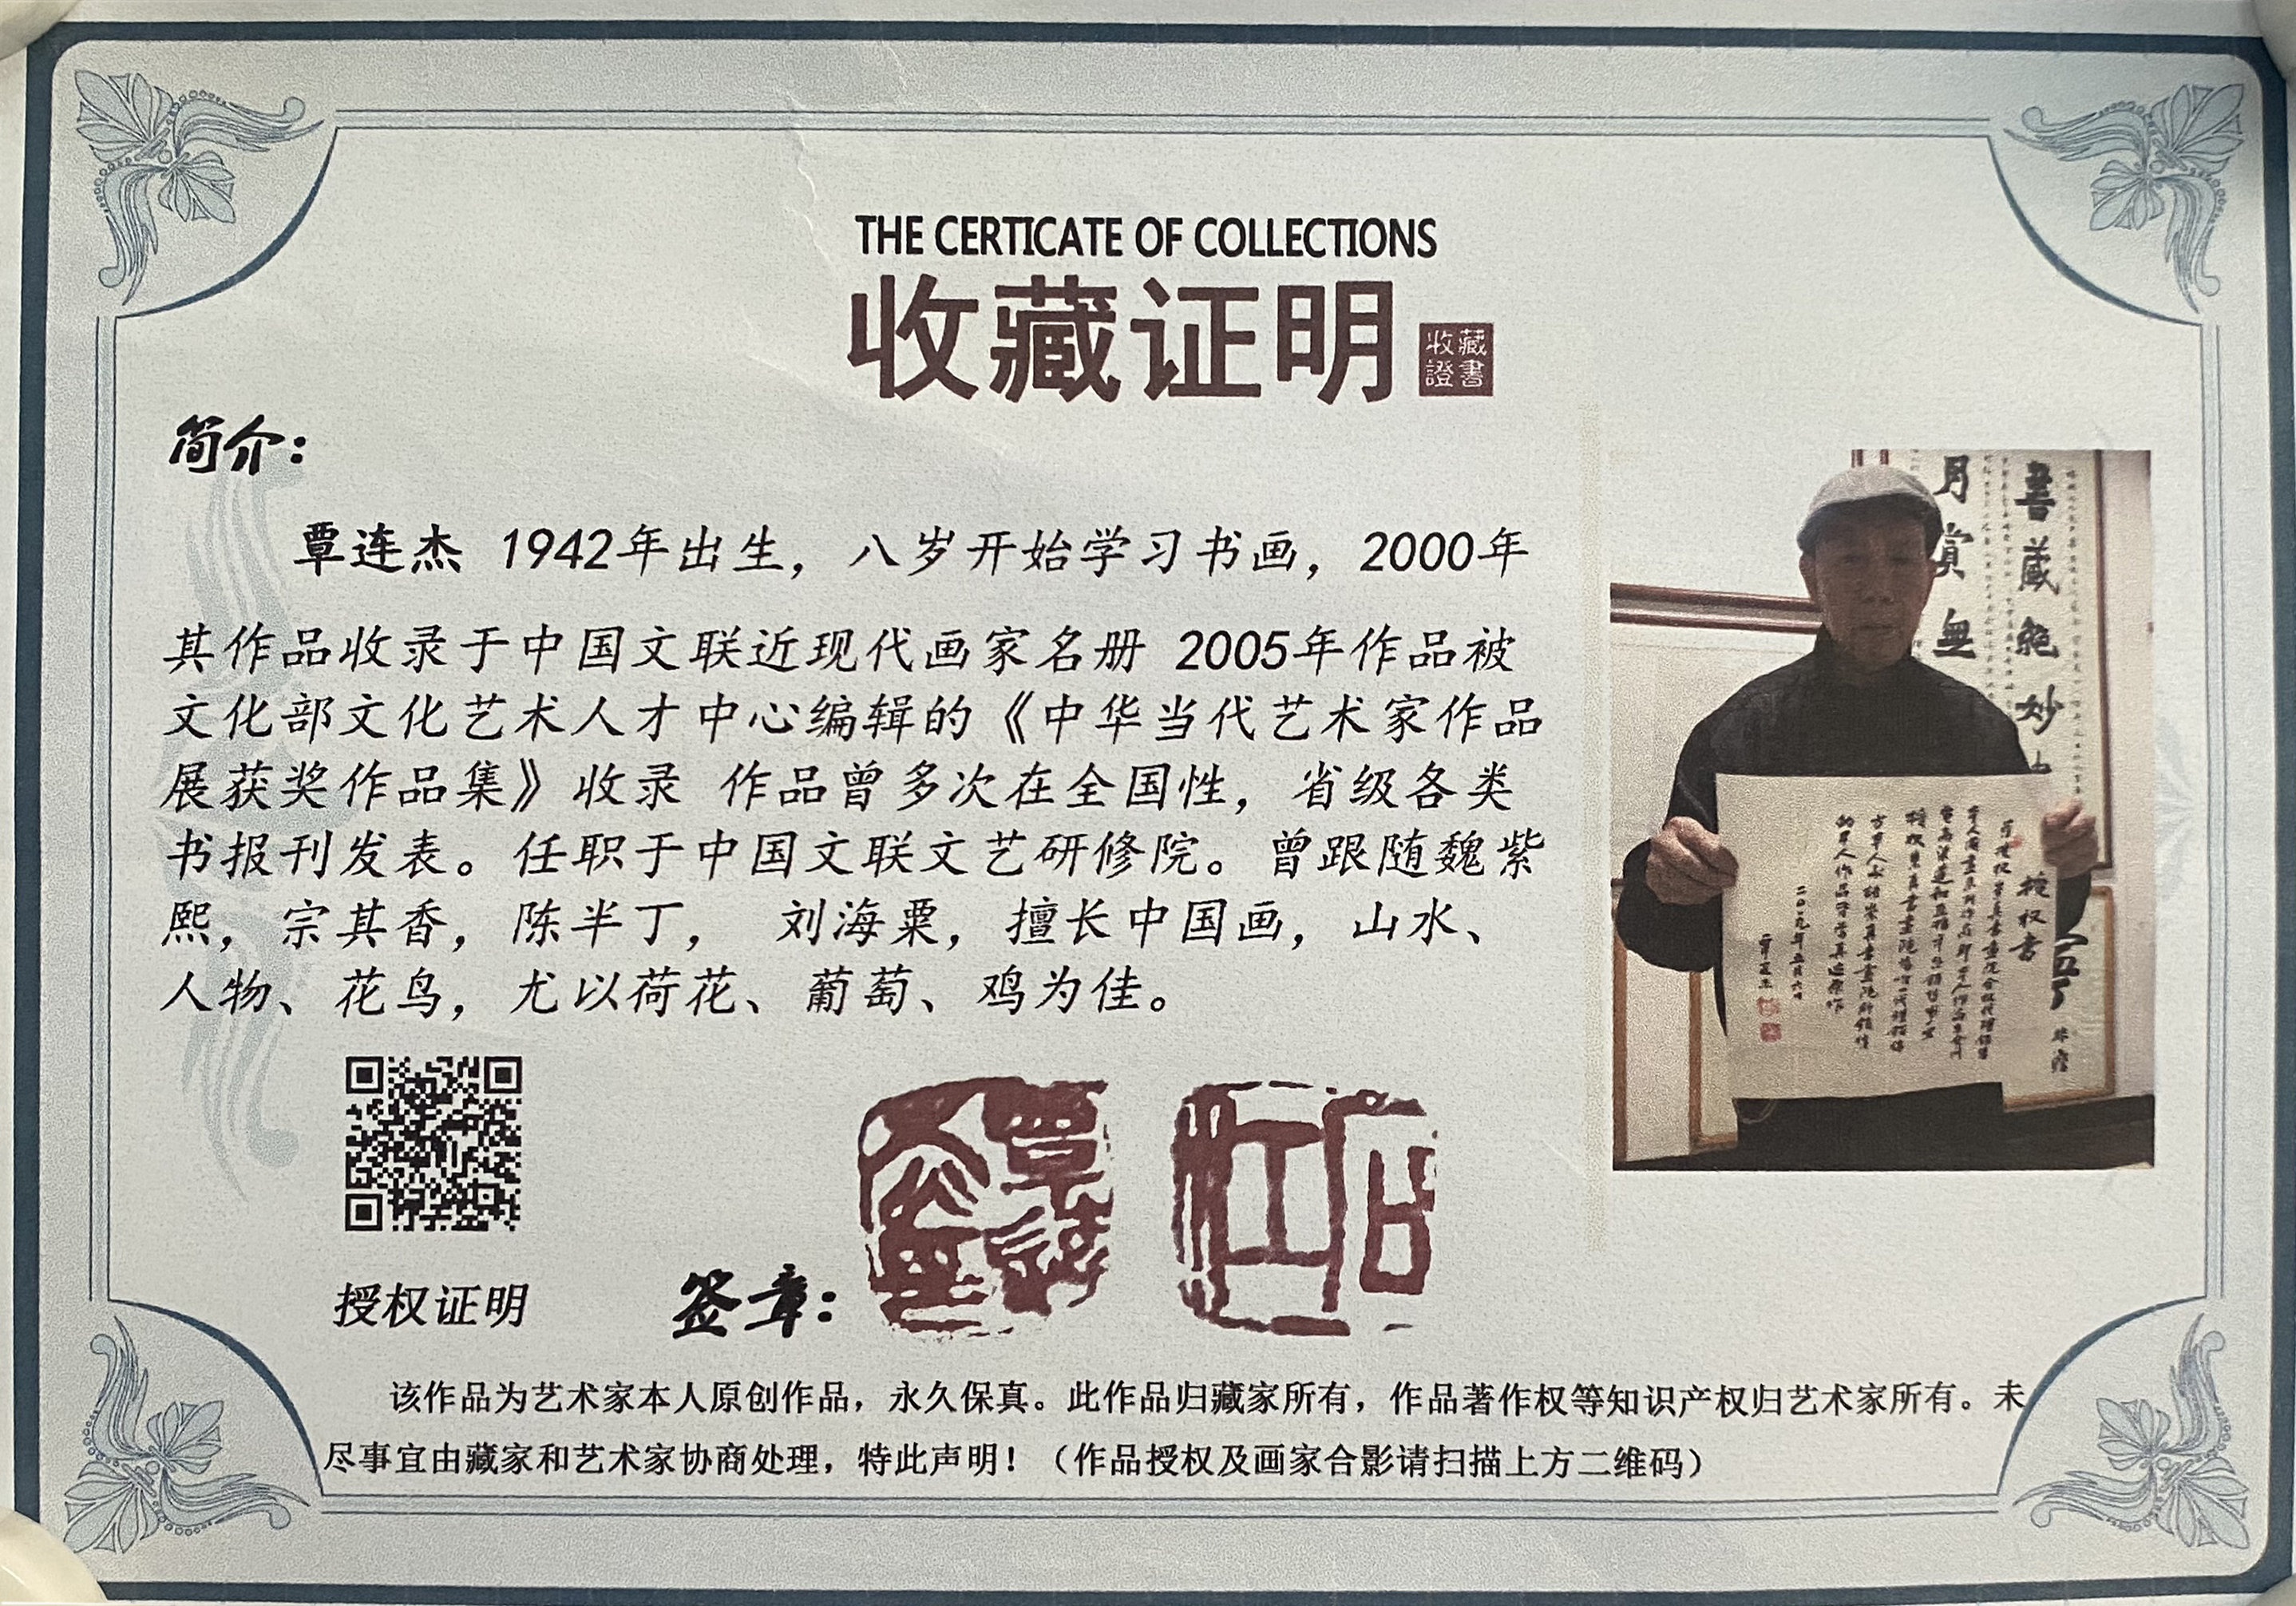 THE CERTICATE OF COLLECTIONS
收藏证明
收藏
證書
简介：
覃连杰 1942年出生，八岁开始学习书画，2000年
其作品收录于中国文联近现代画家名册 2005年作品被
文化部文化艺术人才中心编辑的《中华当代艺术家作品
展获奖作品集》收录 作品曾多次在全国性，省级各类
书报刊发表。任职于中国文联文艺研修院。曾跟随魏紫
熙，宗其香，陈半丁， 刘海粟，擅长中国画，山水、
人物、花鸟，尤以荷花、葡萄、鸡为佳。
書藏絶妙
月賞無
授权书
二〇一九年五月六日
授权证明
签章：
该作品为艺术家本人原创作品，永久保真。此作品归藏家所有，作品著作权等知识产权归艺术家所有。未
尽事宜由藏家和艺术家协商处理，特此声明！（作品授权及画家合影请扫描上方二维码）